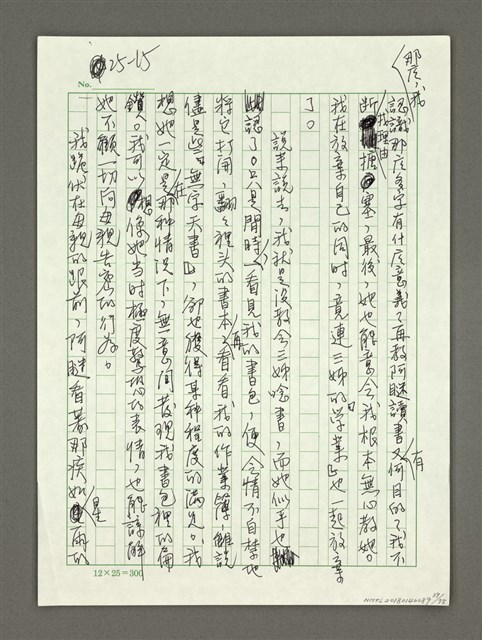 25-15
No.
那麼，我
認識那麼多字有什麼意義？再教阿瞇讀書又有何目的？我不
斷找理由搪塞，最後，她也能意會我根本無心教她。
我在放棄自己的同時，竟連三姊的「學業」也一起放棄
了。
說來說去，我就是沒教會三姊唸書，而她似乎也
認了。只是閒時，看見我的書包，便會情不自禁地
將它打開，翻翻裡頭的書本，再看看我的作業簿，雖說
儘是些「無字天書」，卻也獲得某種程度的滿足。我
想她一定是在那種情況下，無意間發現我書包裡的
鑽。我可以想像她当时極度驚恐的表情，也能諒解
她不顧一切向母親告密的行為。
我跪伏在母親的跟前，阿瞇看著那疾如星雨的
12×25=300